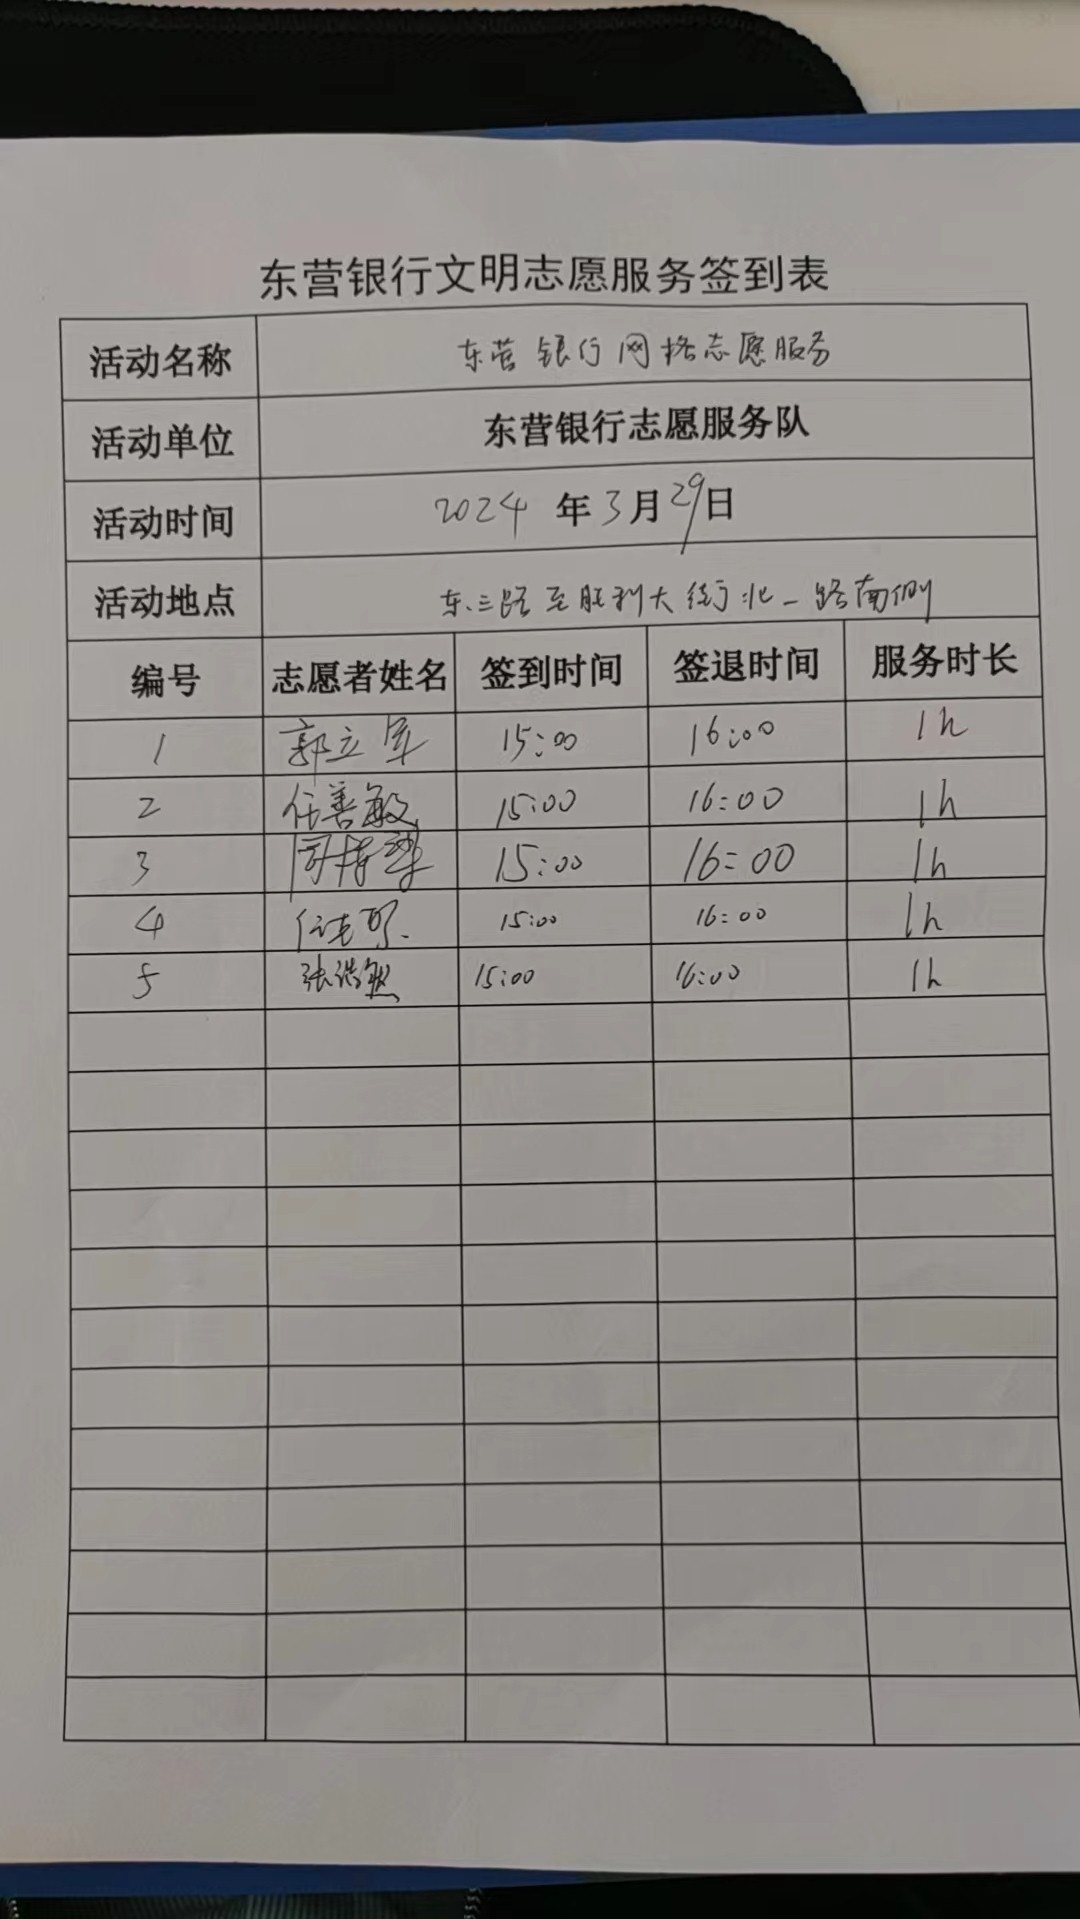 东营银行文明志愿服务签到表
活动名称 东营银行网格志愿服务
活动单位 东营银行志愿服务队
活动时间 2024 年 3 月 29 日
活动地点 东三路至胜利大街北一路南侧
编号 志愿者姓名 签到时间 签退时间 服务时长
1 郭立军 15:00 16:00 1h
2 任善敏 15:00 16:00 1h
3 15:00 16:00 1h
4 15:00 16:00 1h
5 张浩然 15:00 16:00 1h